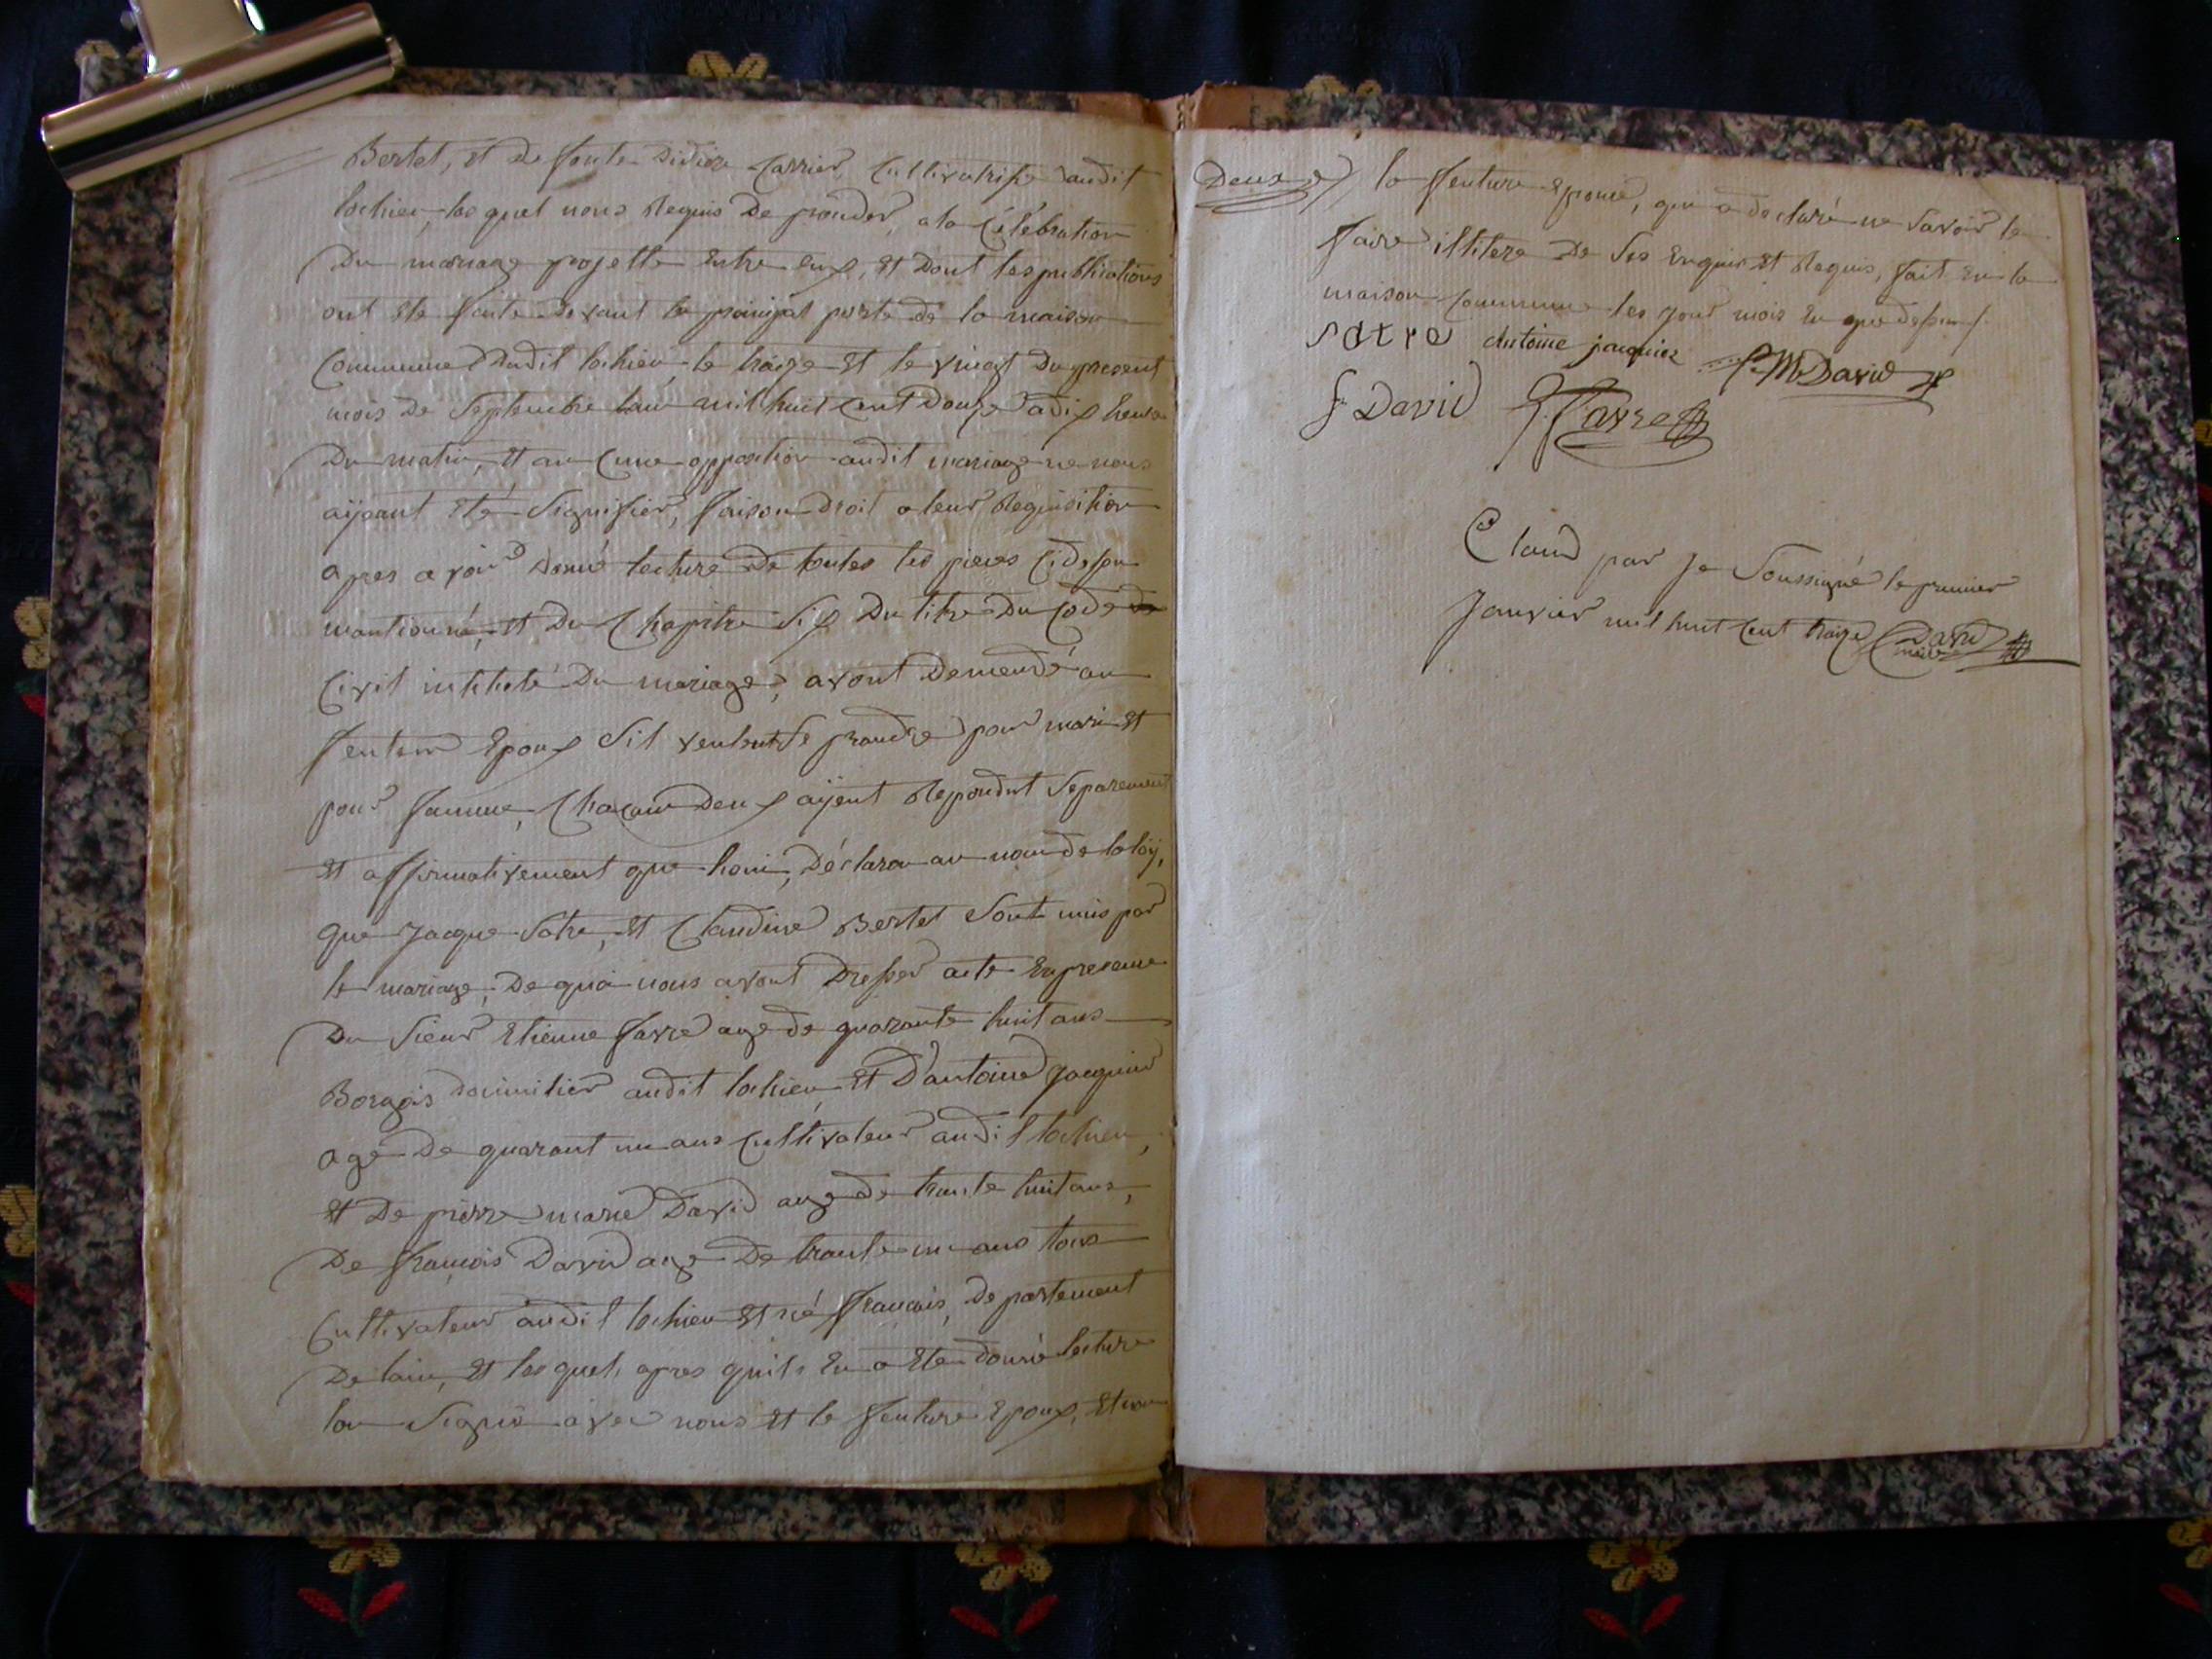 Bertet, et de foute didiere Carrier, Cultivatrise audit
lochieu, les quel nous Requis de prouder, a la Célébration
Du mariage projette entre eux, et Dont les publications
ont ete faite devant la prinsipal porte de la maison
Commune dudit lochieu, le traize et le vingt du present
mois de Septembre lan mil huit Cent Douze a dix heure
Du matin, et au Cune opposition audit mariage ne nous
aÿant été Signifier, faison droit a leur Requisition
apres avoir donné lecture de toutes les pieces Cidessu
mantionné, et du Chapitre Six Du titre du Code
Civil intitulé Du mariage, avont Demendé au
feuture Epoux Sil veulent Se prandre pour mari et
pour famme, Chacun deux aÿent Repondut Separement
et affirmativement que houi, Déclaron au nom de la loÿ,
que Jacque Satre, et Claudine Bertet Sont unis par
le mariage, De quoi nous avont Dresser acte En presence
Du Sieur Etienne favre age de quarante huit ans
Borgois domicilier audit lochieu, et D'antoine Jacquier
age De quarant un ans Cultivateur audit lochieu,
et De pierre marie David age de trante huit ans,
De françois David age De trante un ans tous
Cultivateur audit lochieu et né françois, Departement
De lain, et les quels apres quils En a Ete donné lecture
lon Signé avec nous et le feuture Epoux, et non
Deux la feuture Epouse, qui a declaré ne Savoir le
faire illitere De Ses Enquis et Requis, fait En la
maison Commune les jour mois En que dessus
satre antoine jacquier P. M. David
f David Favre
Claud par Je Soussigné le premier
Janvier mil huit Cent traize David
maire